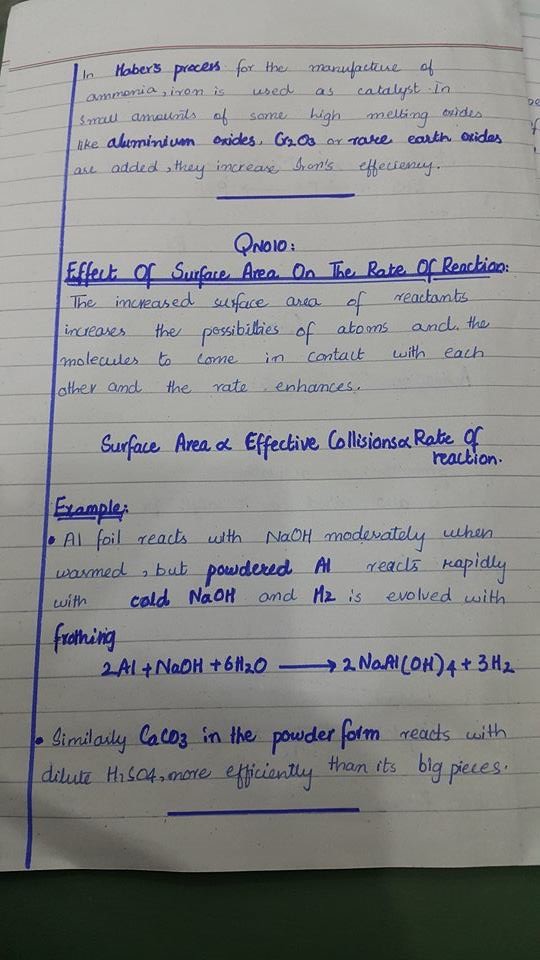 In Haber's process for the manufacture of
ammonia, iron is used as catalyst. In
small amounts of some high melting oxides
like aluminium oxides, Cr2O3 or rare earth oxides
are added, they increase Iron's effeciency.
QNO10:
Effect Of Surface Area On The Rate Of Reaction:
The increased surface area of reactants
increases the possibilties of atoms and the
molecules to come in contact with each
other and the rate enhances.
Surface Area ∝ Effective Collisions ∝ Rate Of
reaction.
Example:
• Al foil reacts with NaOH moderately when
warmed, but powdered Al reacts rapidly
with cold NaOH and H2 is evolved with
frothing
2Al + NaOH + 6H2O → 2NaAl(OH)4 + 3H2
• Similarly CaCO3 in the powder form reacts with
dilute H2SO4, more efficiently than its big pieces.